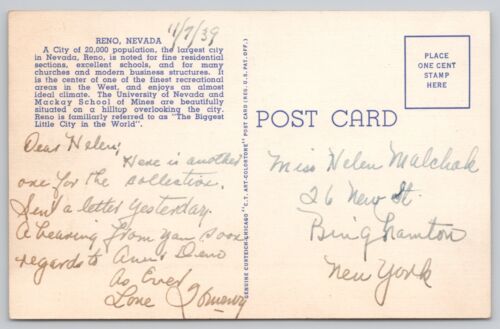 11/7/39
RENO, NEVADA
A City of 20,000 population, the largest city
in Nevada, Reno, is noted for fine residential
sections, excellent schools, and for many
churches and modern business structures. It
is the center of one of the finest recreational
areas in the West, and enjoys an almost
ideal climate. The University of Nevada and
Mackay School of Mines are beautifully
situated on a hilltop overlooking the city.
Reno is familiarly referred to as "The Biggest
Little City in the World".
Dear Helen,
Here is another
one for the collection.
Sent a letter yesterday.
A hearing from you soon
regards to Ann &
As Ever
Love
GENUINE CURTEICH-CHICAGO "C.T. ART-COLORTONE" POST CARD (REG. U.S. PAT. OFF.)
POST CARD
PLACE
ONE CENT
STAMP
HERE
Miss Helen Malchak
26 New St.
Binghamton
New York